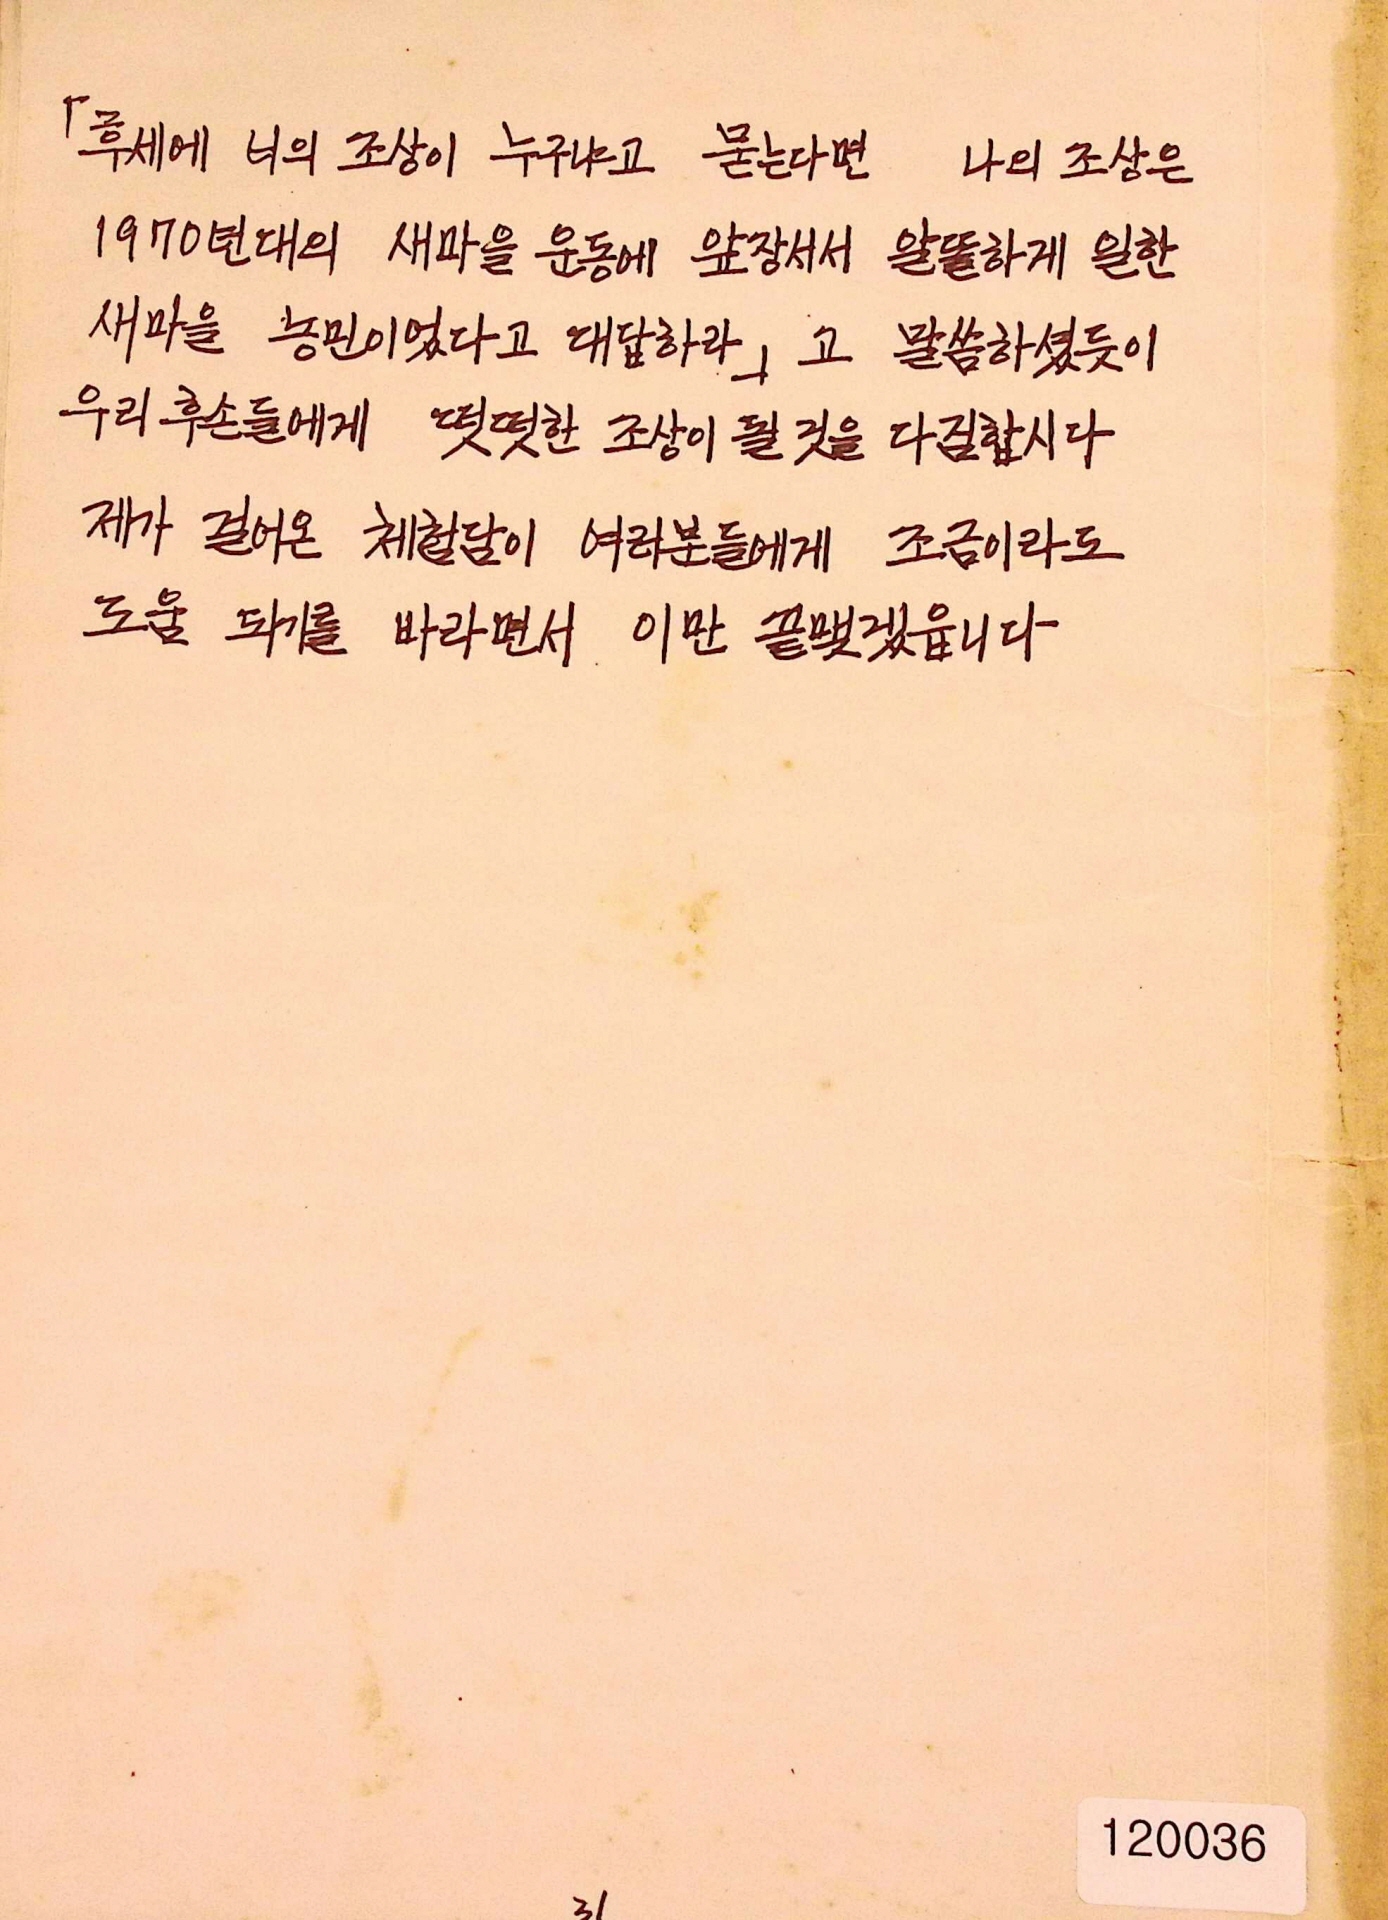 「후세에 너의 조상이 누구냐고 묻는다면 나의 조상은
1970년대의 새마을 운동에 앞장서서 알뜰하게 일한
새마을 농민이었다고 대답하라」고 말씀하셨듯이
우리 후손들에게 떳떳한 조상이 될 것을 다짐합시다
제가 걸어온 체험담이 여러분들에게 조금이라도
도움 되기를 바라면서 이만 끝맺겠읍니다
120036
31